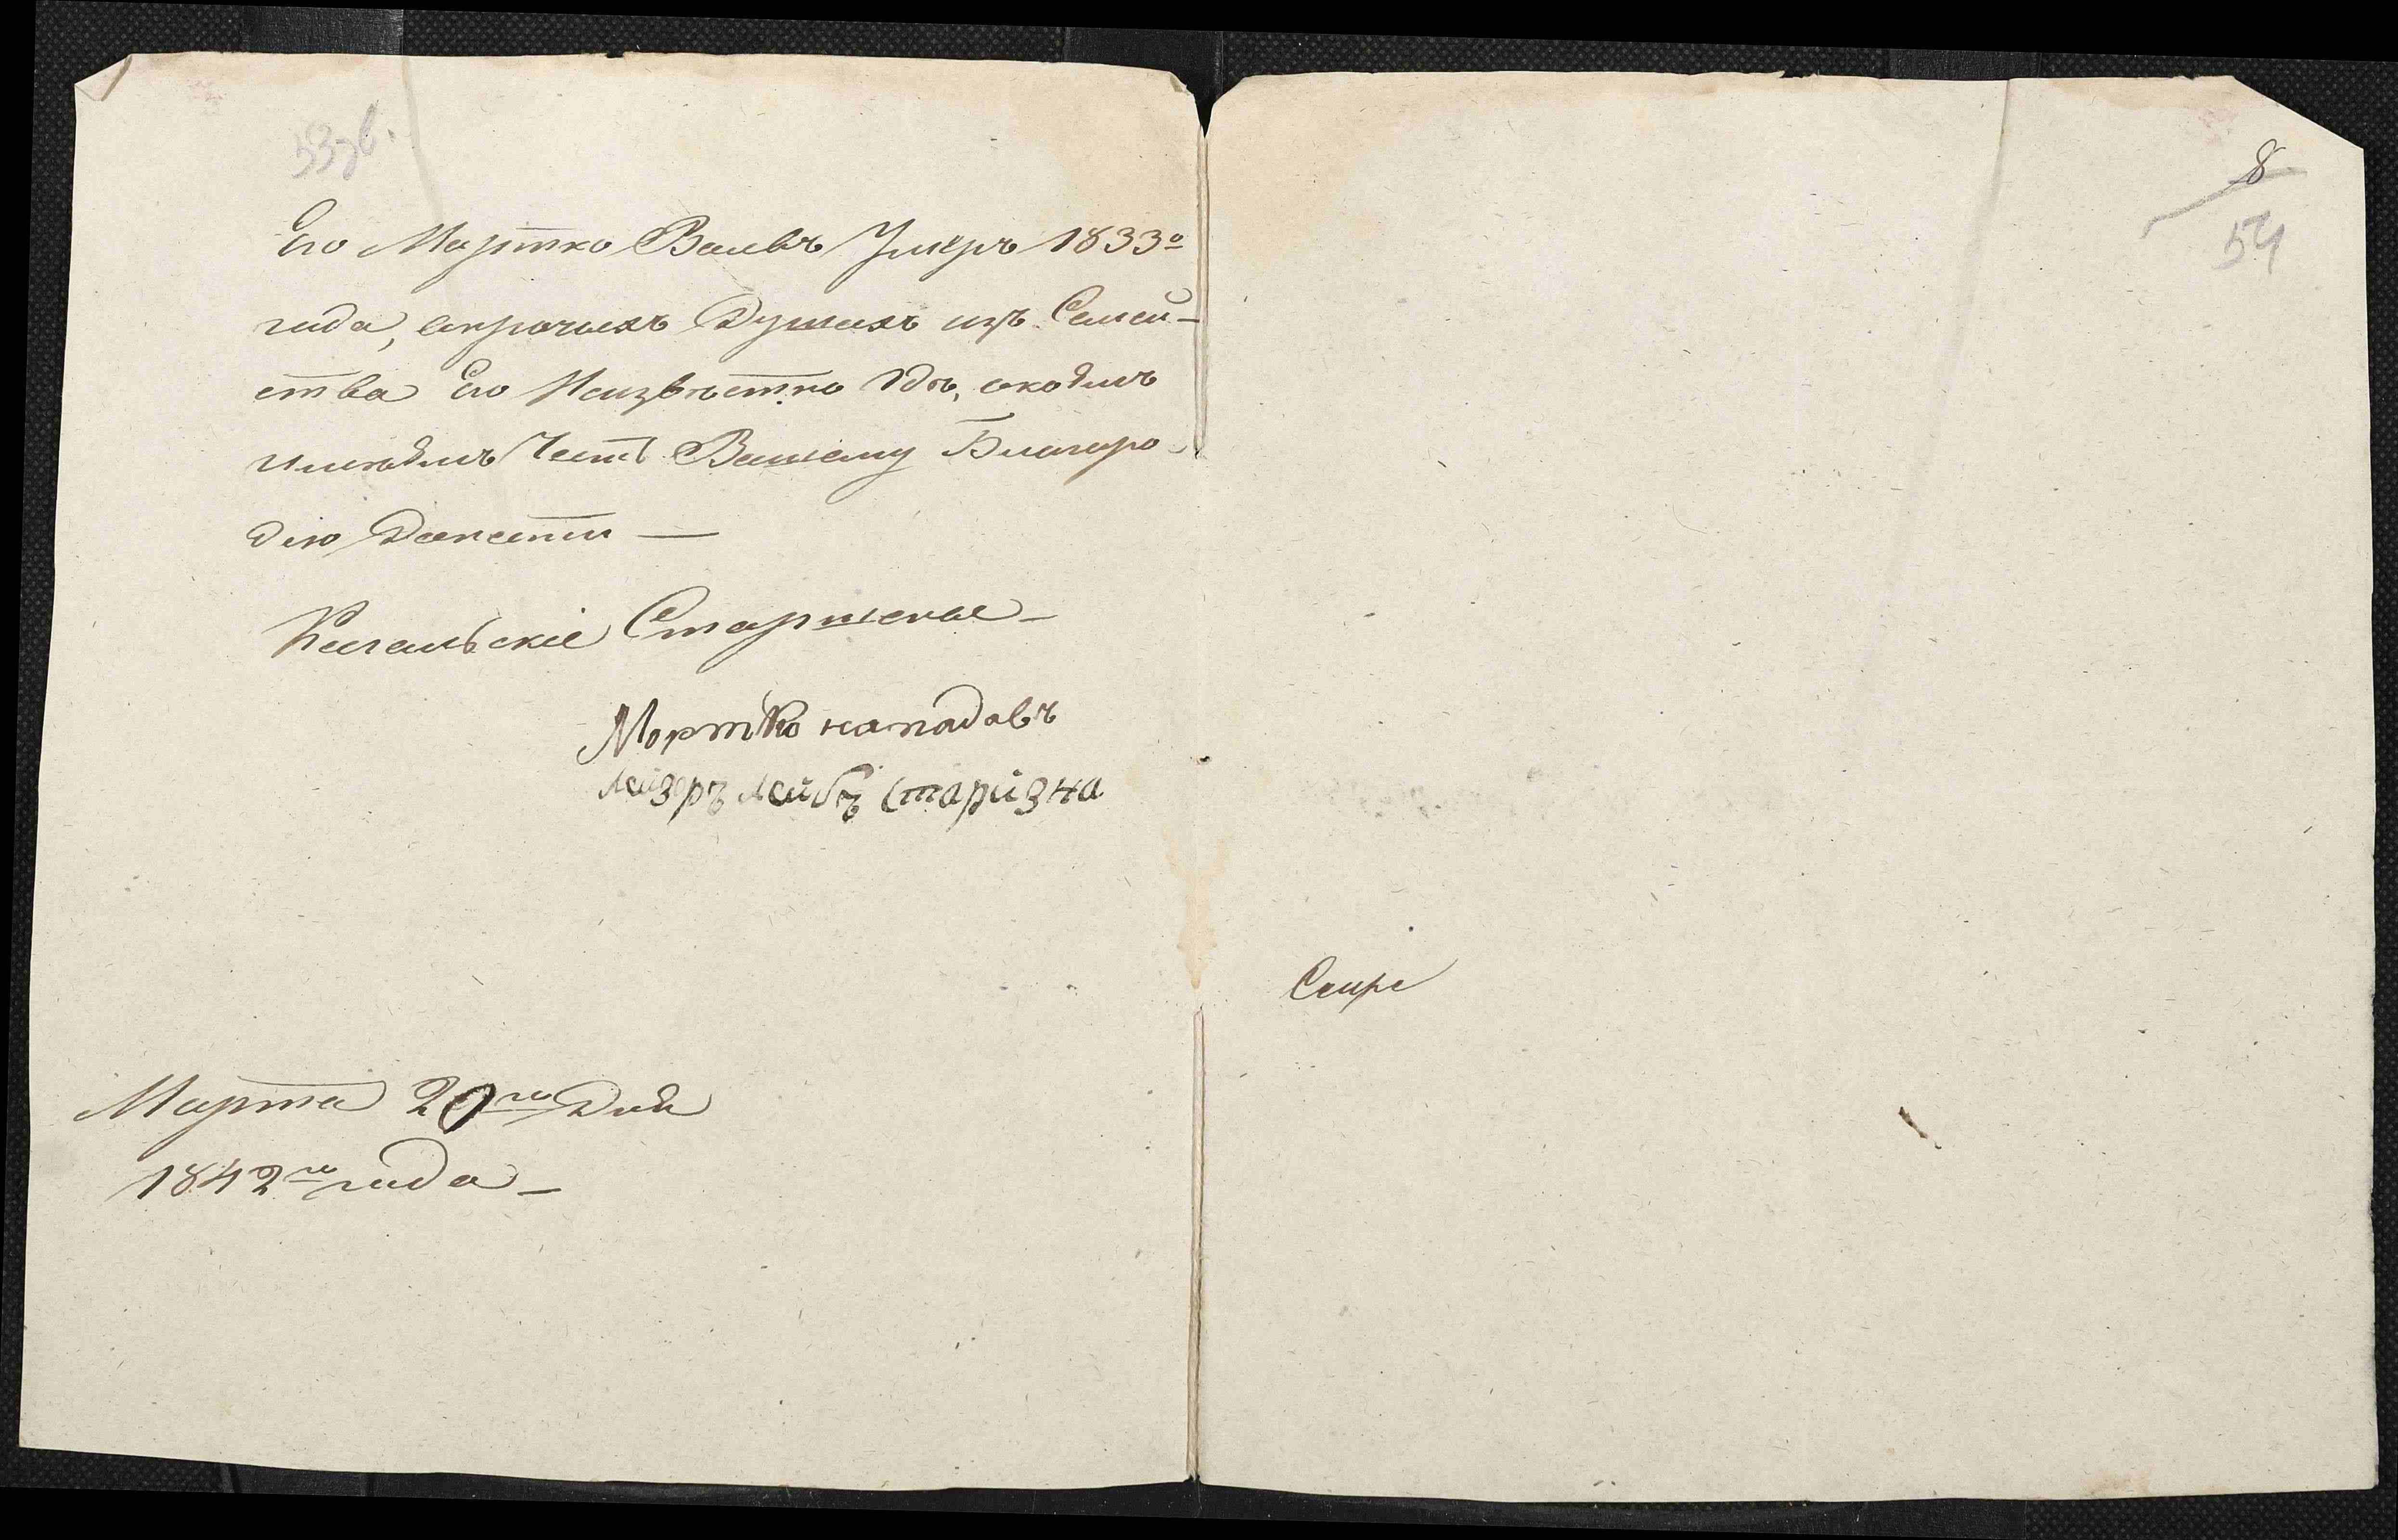 53зв.
Его Мортко Вальвъ Умеръ 1833го
года, апрочихъ Душахъ изъ Семей-
ства Его Неизвѣстно где, окоемъ
имѣемъ Честь Вашему Благоро-
дію Донести —
Кагальскіе Старшены —
Мортко нападовъ
лейзеръ лейбъ старизна
Марта 20го Дня
1842го года —
8
54